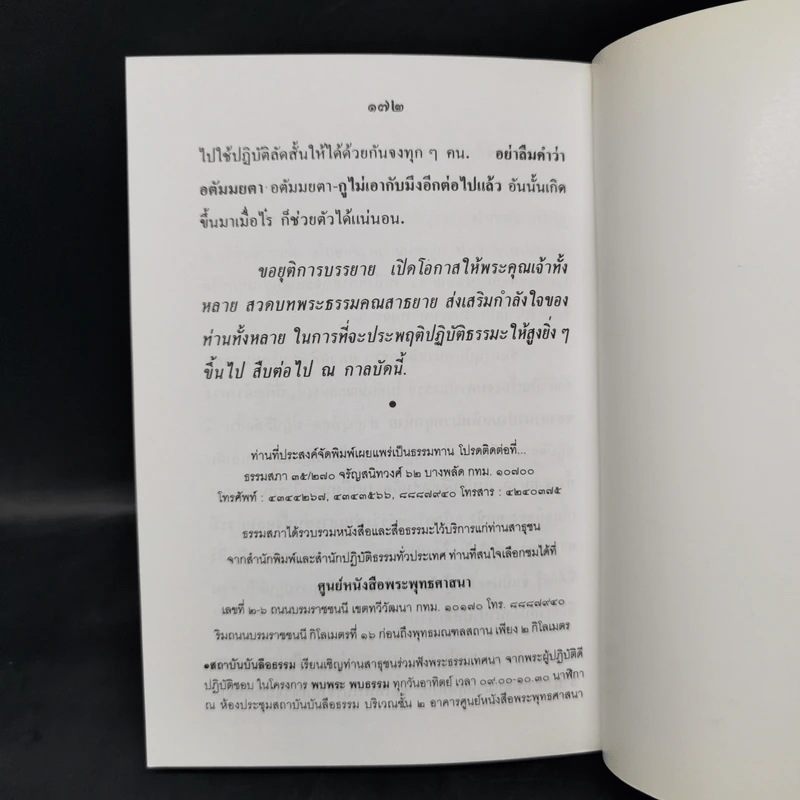 ๑๗๒
ไปใช้ปฏิบัติลัดสั้นให้ได้ด้วยกันจงทุก ๆ คน. อย่าลืมคำว่า
อตัมมยตา อตัมมยตา-กูไม่เอากับมึงอีกต่อไปแล้ว อันนั้นเกิด
ขึ้นมาเมื่อไร ก็ช่วยตัวได้แน่นอน.
ขอยุติการบรรยาย เปิดโอกาสให้พระคุณเจ้าทั้ง
หลาย สวดบทพระธรรมคณสาธยาย ส่งเสริมกำลังใจของ
ท่านทั้งหลาย ในการที่จะประพฤติปฏิบัติธรรมะให้สูงยิ่ง ๆ
ขึ้นไป สืบต่อไป ณ กาลบัดนี้.
•
ท่านที่ประสงค์จัดพิมพ์เผยแพร่เป็นธรรมทาน โปรดติดต่อที่...
ธรรมสภา ๓๕/๒๗๐ จรัญสนิทวงศ์ ๖๒ บางพลัด กทม. ๑๐๗๐๐
โทรศัพท์ : ๔๓๔๔๒๖๗, ๔๓๔๓๕๖๖, ๘๘๘๗๙๔๐ โทรสาร : ๔๒๔๐๓๗๕
ธรรมสภาได้รวบรวมหนังสือและสื่อธรรมะไว้บริการแก่ท่านสาธุชน
จากสำนักพิมพ์และสำนักปฏิบัติธรรมทั่วประเทศ ท่านที่สนใจเลือกชมได้ที่
ศูนย์หนังสือพระพุทธศาสนา
เลขที่ ๒-๖ ถนนบรมราชชนนี เขตทวีวัฒนา กทม. ๑๐๑๗๐ โทร. ๘๘๘๗๙๔๐
ริมถนนบรมราชชนนี กิโลเมตรที่ ๑๖ ก่อนถึงพุทธมณฑลสถาน เพียง ๒ กิโลเมตร
•สถาบันบันลือธรรม เรียนเชิญท่านสาธุชนร่วมฟังพระธรรมเทศนา จากพระผู้ปฏิบัติดี
ปฏิบัติชอบ ในโครงการ พบพระ พบธรรม ทุกวันอาทิตย์ เวลา ๐๙.๐๐-๑๐.๓๐ นาฬิกา
ณ ห้องประชุมสถาบันบันลือธรรม บริเวณชั้น ๒ อาคารศูนย์หนังสือพระพุทธศาสนา